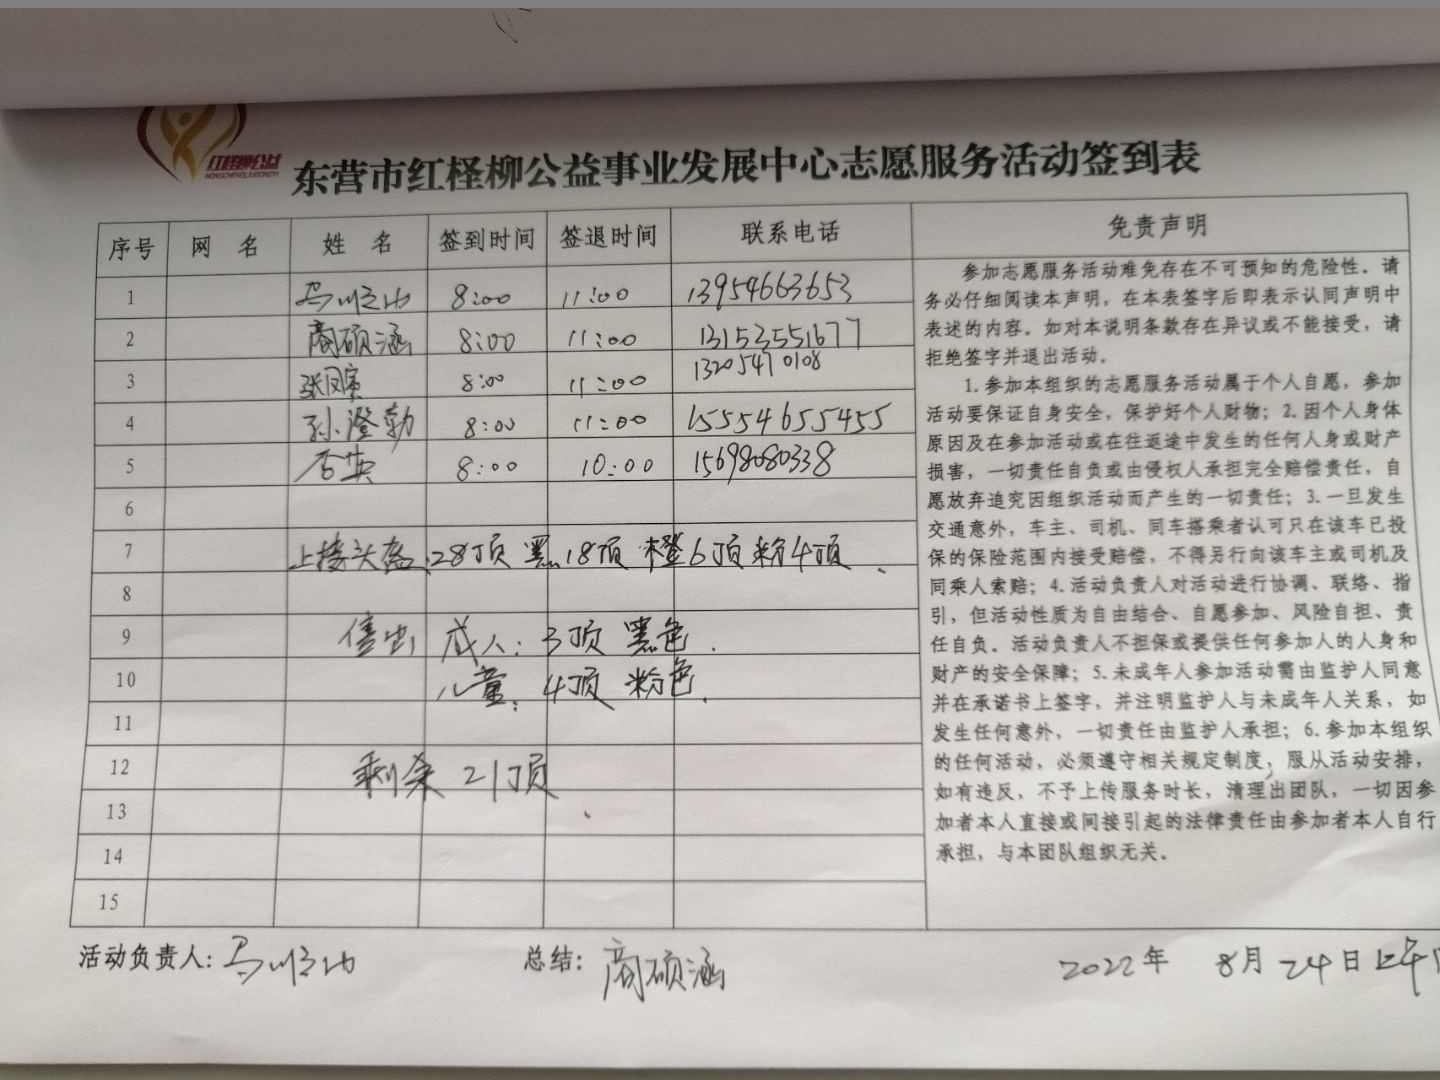 红柽柳公益
HONGCHENGLIUGONGYI
东营市红柽柳公益事业发展中心志愿服务活动签到表
序号 网 名 姓 名 签到时间 签退时间 联系电话 免责声明
1 8:00 11:00 13954663653
2 商硕涵 8:00 11:00 13153551677
3 8:00 11:00 13205470108
4 孙澄勃 8:00 11:00 15554655455
5 8:00 10:00 15698080338
6
7 上接头盔:28顶 黑18顶 橙6顶 粉4顶、
8
9 售出 成人:3顶 黑色.
10 儿童: 4顶 粉色.
11
12 剩余 21顶
13
14
15
参加志愿服务活动难免存在不可预知的危险性。请
务必仔细阅读本声明，在本表签字后即表示认同声明中
表述的内容。如对本说明条款存在异议或不能接受，请
拒绝签字并退出活动。
1.参加本组织的志愿服务活动属于个人自愿，参加
活动要保证自身安全，保护好个人财物；2.因个人身体
原因及在参加活动或在往返途中发生的任何人身或财产
损害，一切责任自负或由侵权人承担完全赔偿责任，自
愿放弃追究因组织活动而产生的一切责任；3.一旦发生
交通意外，车主、司机、同车搭乘者认可只在该车已投
保的保险范围内接受赔偿，不得另行向该车主或司机及
同乘人索赔；4.活动负责人对活动进行协调、联络、指
引，但活动性质为自由结合、自愿参加、风险自担、责
任自负。活动负责人不担保或提供任何参加人的人身和
财产的安全保障；5.未成年人参加活动需由监护人同意
并在承诺书上签字，并注明监护人与未成年人关系，如
发生任何意外，一切责任由监护人承担；6.参加本组织
的任何活动，必须遵守相关规定制度，服从活动安排，
如有违反，不予上传服务时长，清理出团队，一切因参
加者本人直接或间接引起的法律责任由参加者本人自行
承担，与本团队组织无关。
活动负责人: 总结: 商硕涵 2022年 8月24日上午